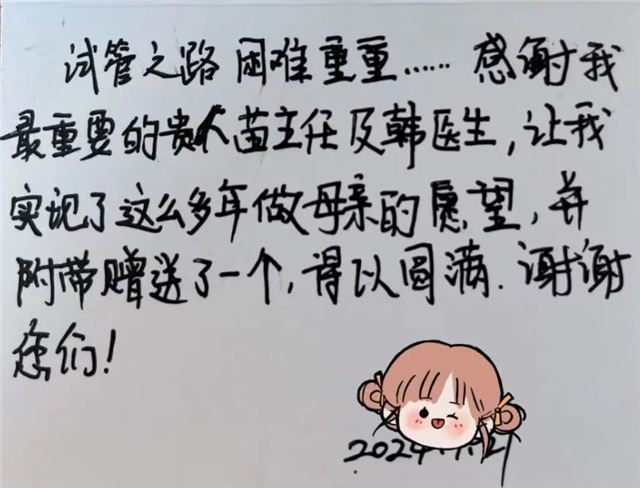 试管之路困难重重……感谢我
最重要的贵人苗主任及韩医生,让我
实现了这么多年做母亲的愿望,并
附带赠送了一个,得以圆满.谢谢
您们!
2024